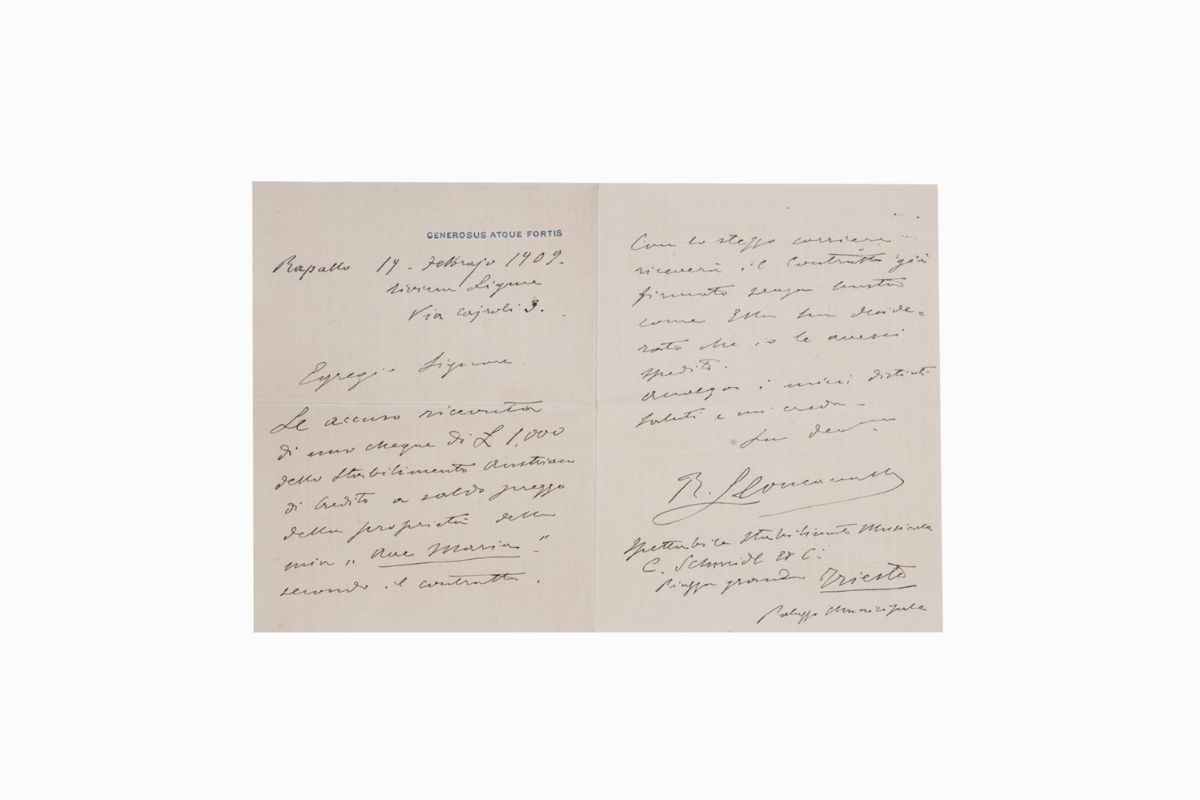 GENEROSUS ATQUE FORTIS
Rapallo 19. Febbrajo 1909.
Riviera Ligure
Via Cajroli 3.
Egregio Signore
Le accuso ricevuta
di uno cheque di £ 1,000
dello Stabilimento Austriaco
di Credito a saldo prezzo
della proprietà della
mia „ Ave Maria "
secondo il contratto.
Con lo stesso corriere
riceverà il Contratto già
firmato senza
come Ella ha deside=
rato che io le avessi
spedito.
Accolga i miei distinti
saluti e mi creda
Suo
R. Leoncavallo
Spettabile Stabilimento Musicale
C. Schmidl & C.
Piazza grande Trieste
Palazzo Municipale